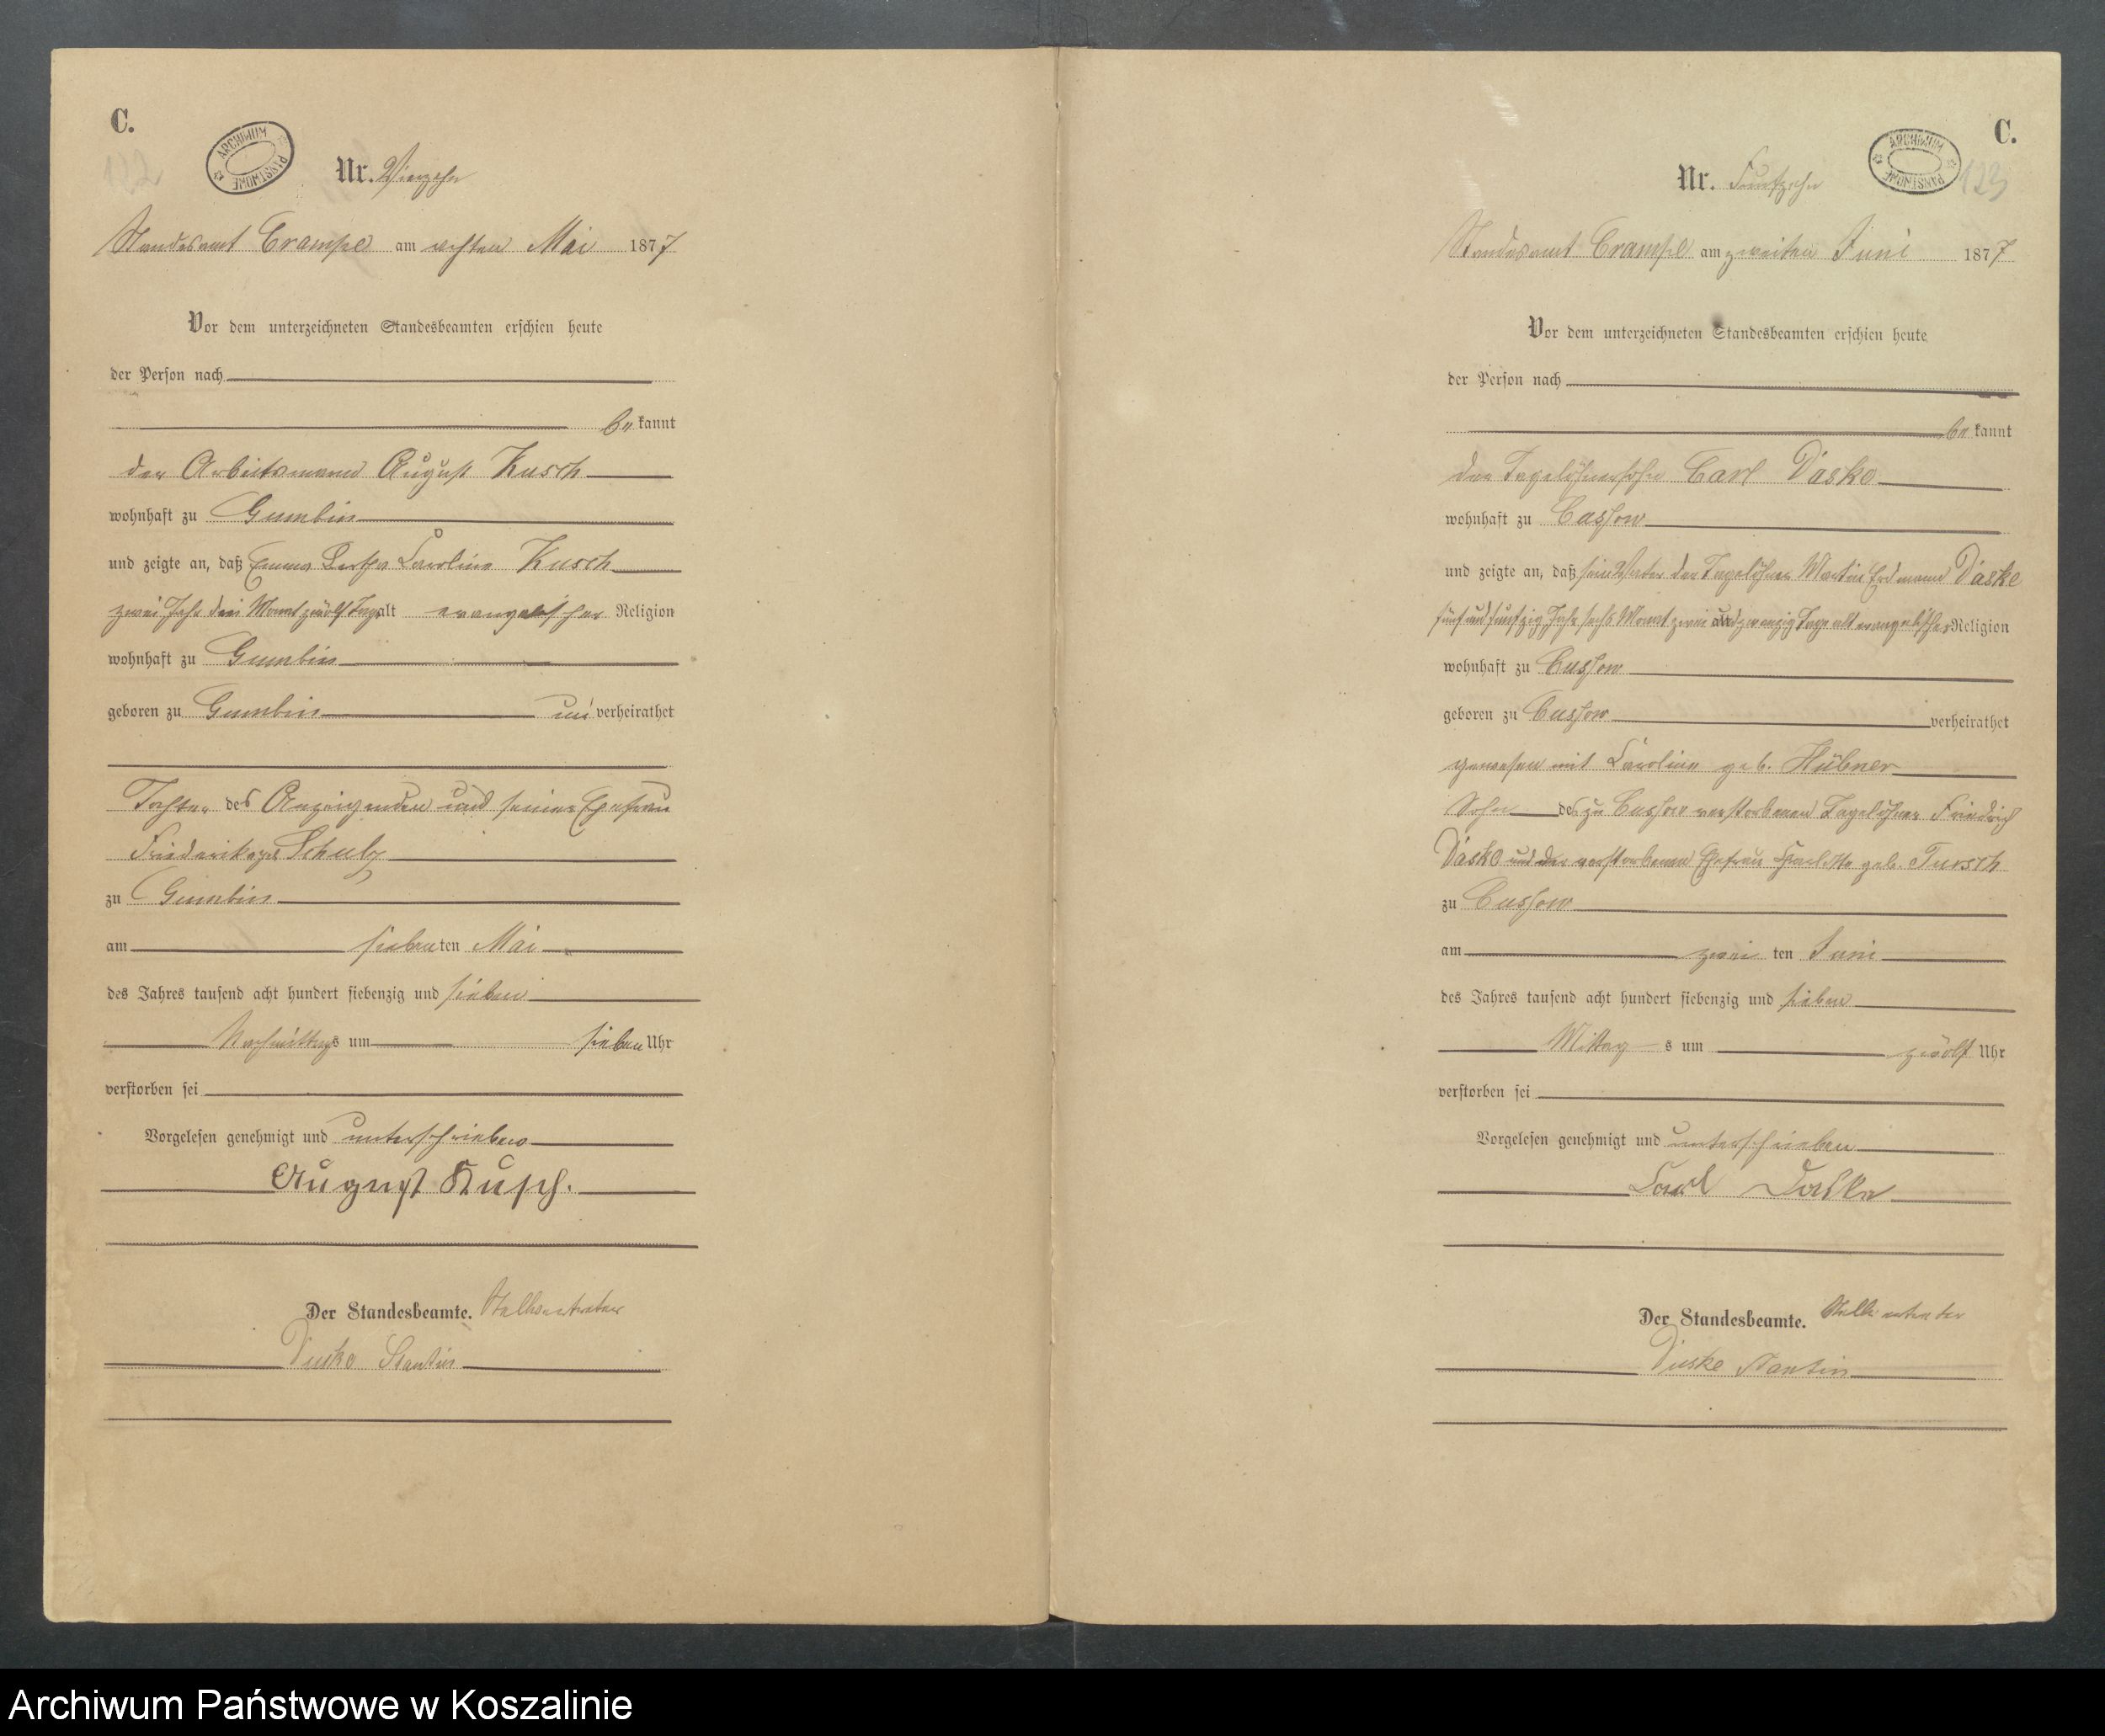 C.
122
ARCHIWUM PAŃSTWOWE
Nr. Vierzehn
Standesamt Crampe am achten Mai 1877
Vor dem unterzeichneten Standesbeamten erschien heute
der Person nach
be kannt
der Arbeitsmann August Kusch
wohnhaft zu Gumbin
und zeigte an, daß Emma Bertha Caroline Kusch
zwei Jahr drei Monat zwölf Tage alt evangelischer Religion
wohnhaft zu Gumbin
geboren zu Gumbin un verheirathet
Tochter des Anzeigenden und seiner Ehefrau
Friederike geb. Schulz
zu Gumbin
am siebenten Mai
des Jahres tausend acht hundert siebenzig und sieben
Nachmittags um sieben Uhr
verstorben sei
Vorgelesen genehmigt und unterschrieben
August Kusch.
Der Standesbeamte. Stellvertreter
C.
ARCHIWUM PAŃSTWOWE
123
Nr. Funfzehn
Standesamt Crampe am zweiten Juni 1877
Vor dem unterzeichneten Standesbeamten erschien heute
der Person nach
be kannt
der Tagelöhnersohn Carl Daske
wohnhaft zu Cussow
und zeigte an, daß sein Vater der Tagelöhner Martin Erdmann Daske
fünf und funfzig Jahr sechs Monat zwei und zwanzig Tage alt evangelischer Religion
wohnhaft zu Cussow
geboren zu Cussow verheirathet
gewesen mit Caroline geb. Hübner
Sohn des zu Cussow verstorbenen Tagelöhner Friedrich
Daske und der verstorbenen Ehefrau geb. Tursch
zu Cussow
am zwei ten Juni
des Jahres tausend acht hundert siebenzig und sieben
Mittag s um zwölf Uhr
verstorben sei
Vorgelesen genehmigt und unterschrieben
Carl Daske
Der Standesbeamte. Stellvertreter
Archiwum Państwowe w Koszalinie